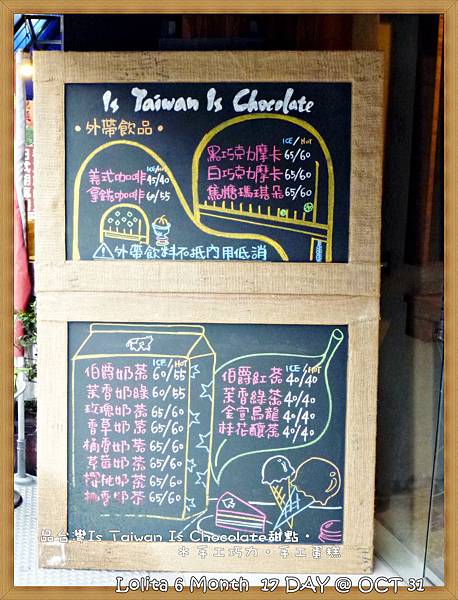 Is Taiwan Is Chocolate
•外帶飲品•
ICE/HOT
義式咖啡 45/40
拿鐵咖啡 60/55
ICE/HOT
黑巧克力摩卡 65/60
白巧克力摩卡 65/60
焦糖瑪琪朵 65/60
外帶飲料不抵內用低消
ICE/HOT
伯爵奶茶 60/55
茉香奶綠 60/55
玫瑰奶茶 65/60
香草奶茶 65/60
橘香奶茶 65/60
草莓奶茶 65/60
櫻桃奶茶 65/60
奶茶 65/60
ICE/HOT
伯爵紅茶 40/40
茉香綠茶 40/40
金宣烏龍 40/40
桂花釀茶 40/40
品台灣Is Taiwan Is Chocolate甜點。
＊手工巧力。手工蛋糕
Lolita 6 Month 17 DAY @ OCT 31